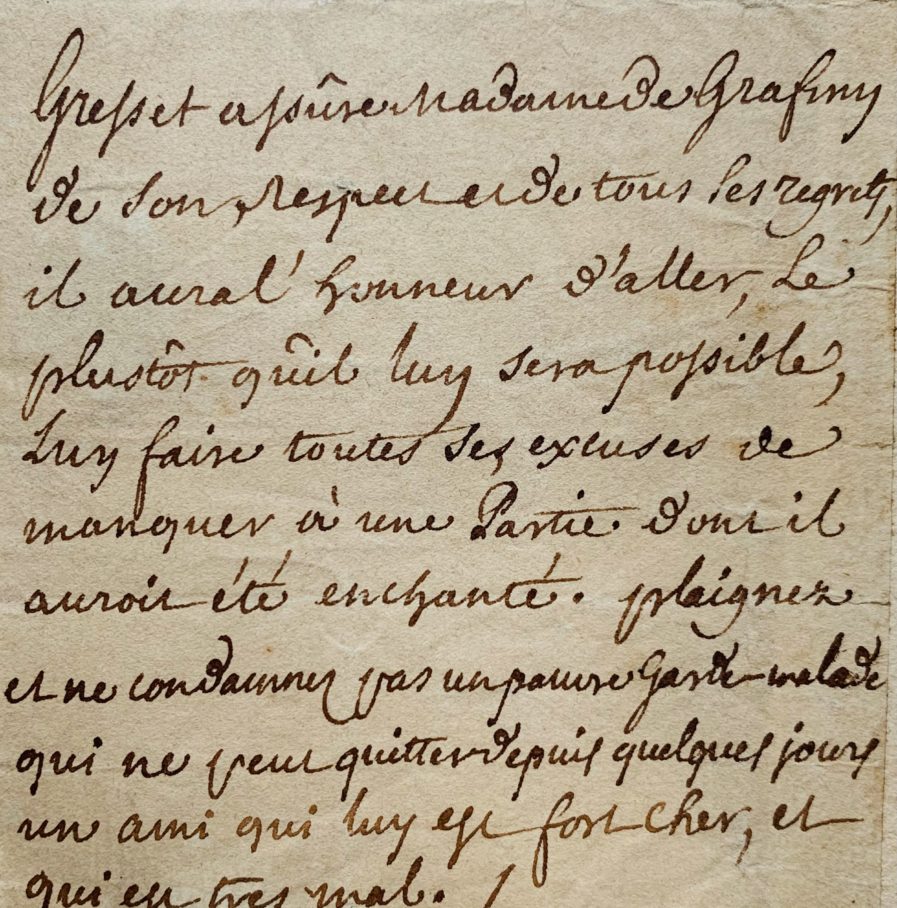 Gresset assûre Madame de Grafiny
de son respect et de tous ses regrets,
il aura l'honneur d'aller, Le
plustôt qu'il luy sera possible,
Luy faire toutes ses excuses de
manquer à une Partie dont il
auroit été enchanté. plaignez
et ne condamnez pas un pauvre Garde-malade
qui ne peut quitter depuis quelques jours
un ami qui luy est fort cher, et
qui est tres mal. /